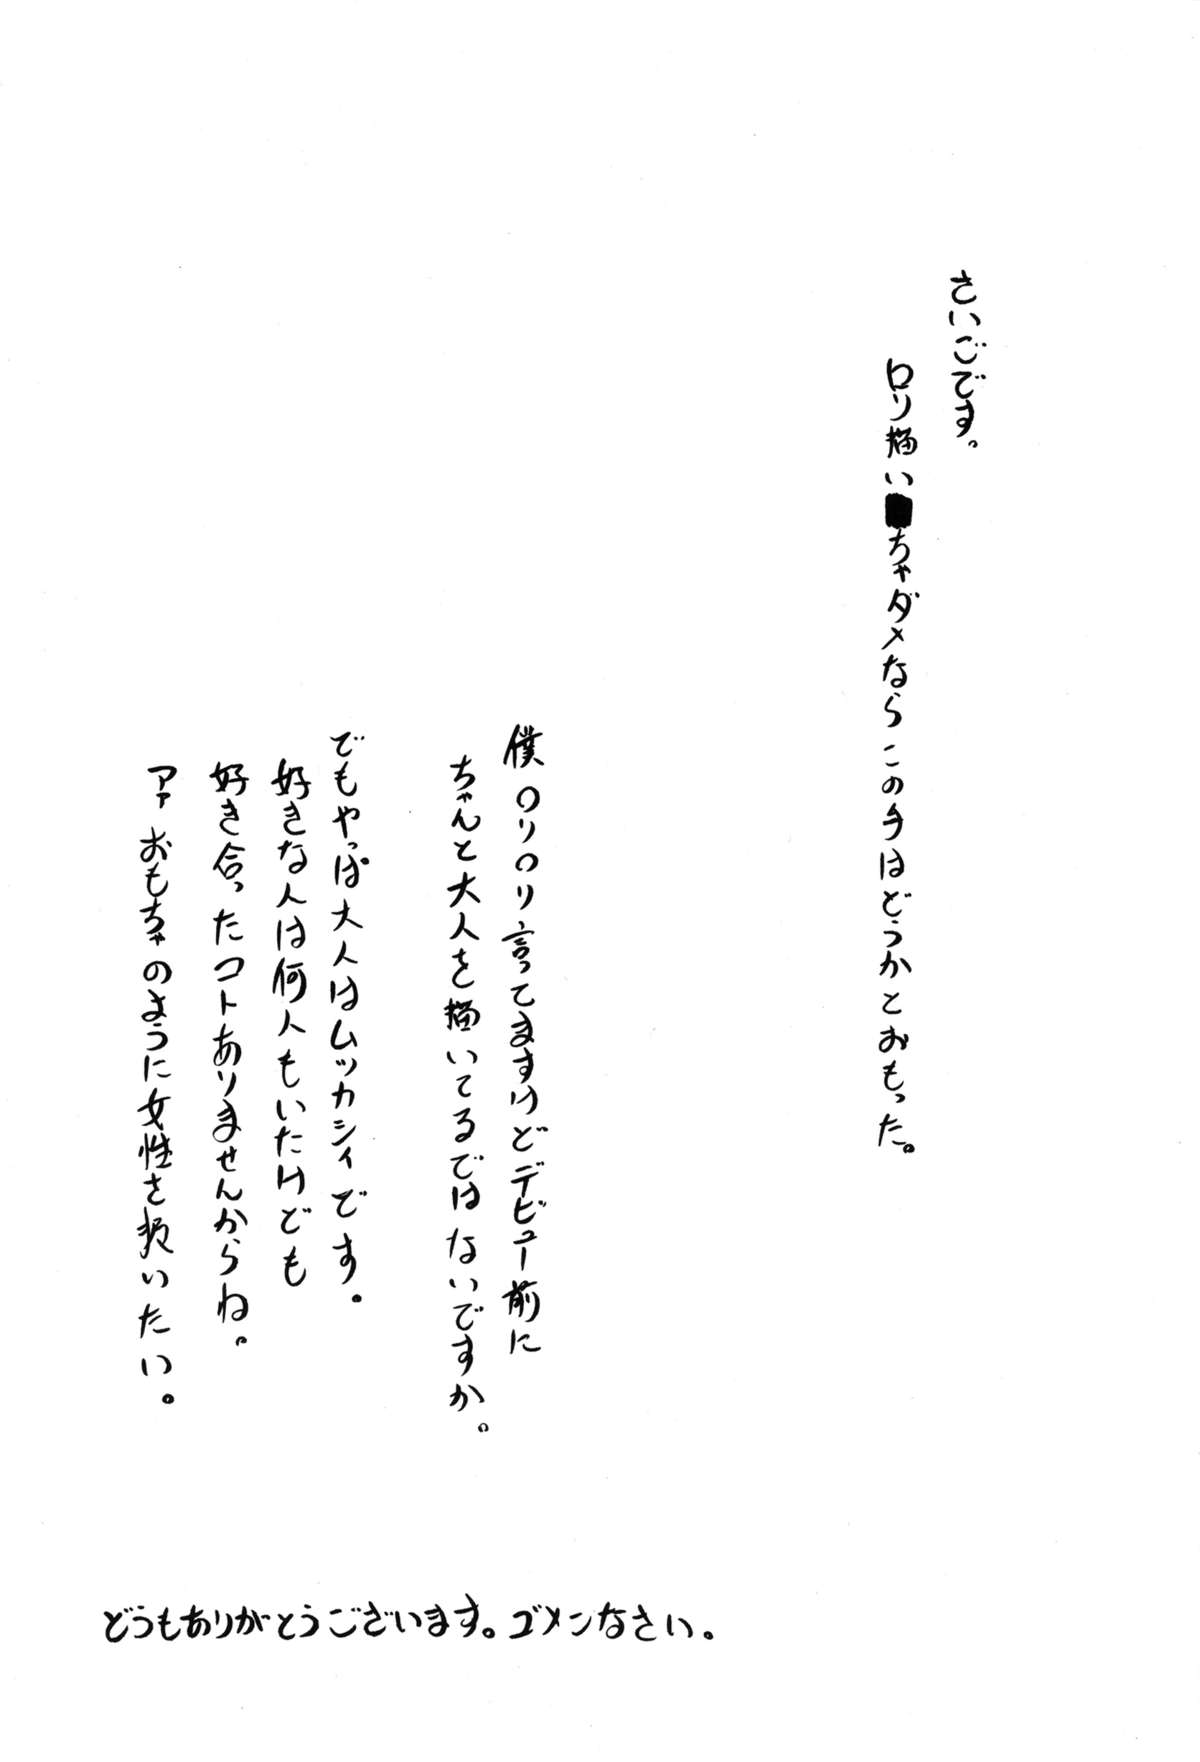 さいごです。
ロリ描いちゃダメなら この手はどうかとおもった。
僕 ロリロリ言ってますけどデビュー前に
ちゃんと大人を描いてるではないですか。
でもやっぱ大人はムツカシィです。
好きな人は何人もいたけども
好き合ったコトありませんからね。
アァ おもちゃのように女性を扱いたい。
どうもありがとうございます。ゴメンなさい。